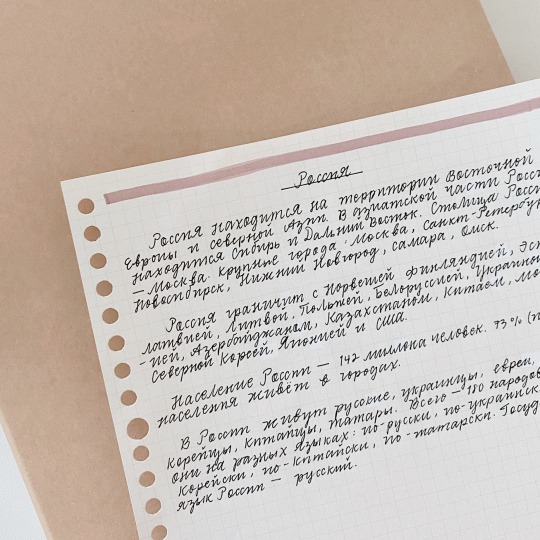 Россия
Россия находится на территории Восточной
Европы и северной Азии. В азиатской части
находится Сибирь и Дальний Восток. Столица
— Москва. Крупные города: Москва, Санкт-Петербу
Новосибирск, Нижний Новгород, Самара, Омск.
Россия граничит с Норвегией, Финляндией,
Латвией, Литвой, Польшей, Белоруссией, Украиной
-ией, Азербайджаном, Казахстаном, Китаем,
Северной Кореей, Японией и США.
Население России — 142 миллона человек. 73%
населения живёт в городах.
В России живут русские, украинцы, евреи,
корейцы, китайцы, татары. Всего — 180 народов
они на разных языках: по-русски, по-украинск
корейски, по-китайски, по-татарски.
язык России — русский.